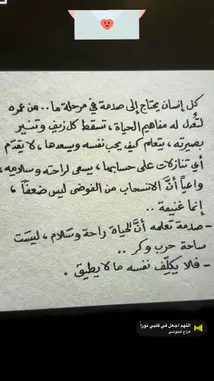 كل إنسان يحتاج إلى صدمة في مرحلة ما.. من عمره
لتعدل له مفاهيم الحياة، تسقط كل زيف وتنير
بصيرته، يتعلم كيف يحب نفسه ويسعدها، لا يقدم
أي تنازلات على حسابها، يسعى لراحته وسلامه،
واعياً أنَّ الانسحاب من الفوضى ليس ضعفاً،
إنما غنيمة..
- صدمة تعلمه أنَّ الحياة راحة وسلام، ليست
ساحة حرب وكر..
- فلا يكلِّف نفسه ما لا يطيق.
اللهم اجعل في قلبي نوراً